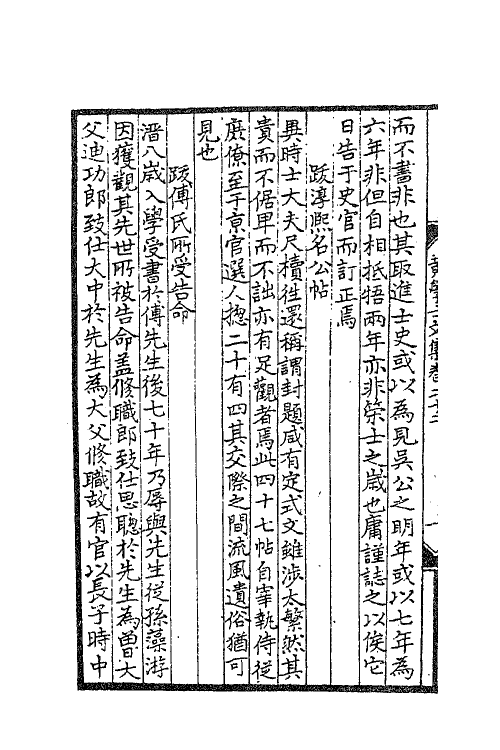 而不書非也其取進士史或以為見吳公之明年或以七年為
六年非但自相抵牾兩年亦非策士之歲也庸謹誌之以俟它
日告于史官而訂正焉
跋淳熙名公帖
異時士大夫尺牘往還稱謂封題咸有定式文雖涉太繁然其
貴而不倨卑而不詘亦有足觀者焉此四十七帖自宰執侍從
庶僚至于京官選人揔二十有四其交際之間流風遺俗猶可
見也
跋傅氏所受告命
溍八歲入學受書於傅先生後七十年乃辱與先生從孫藻游
因獲觀其先世所被告命盖修職郎致仕思聰於先生為曽大
父迪功郎致仕大中於先生為大父修職故有官以長子時中
黃學士文集卷二十二